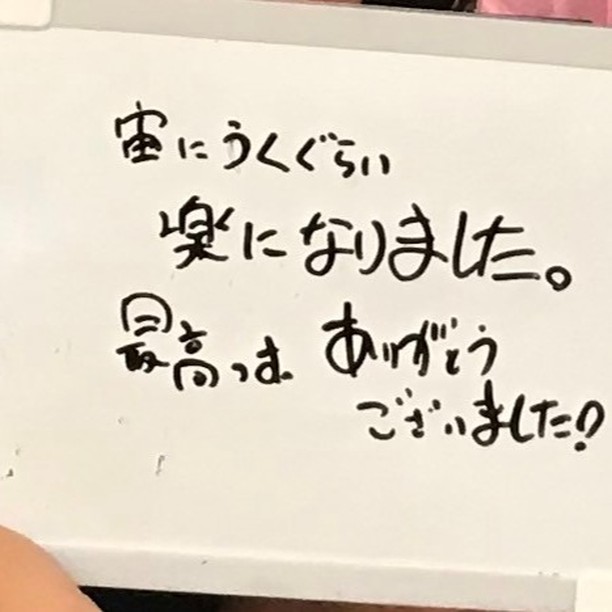 宙にうくぐらい
楽になりました。
最高っす。ありがとう
ございました?